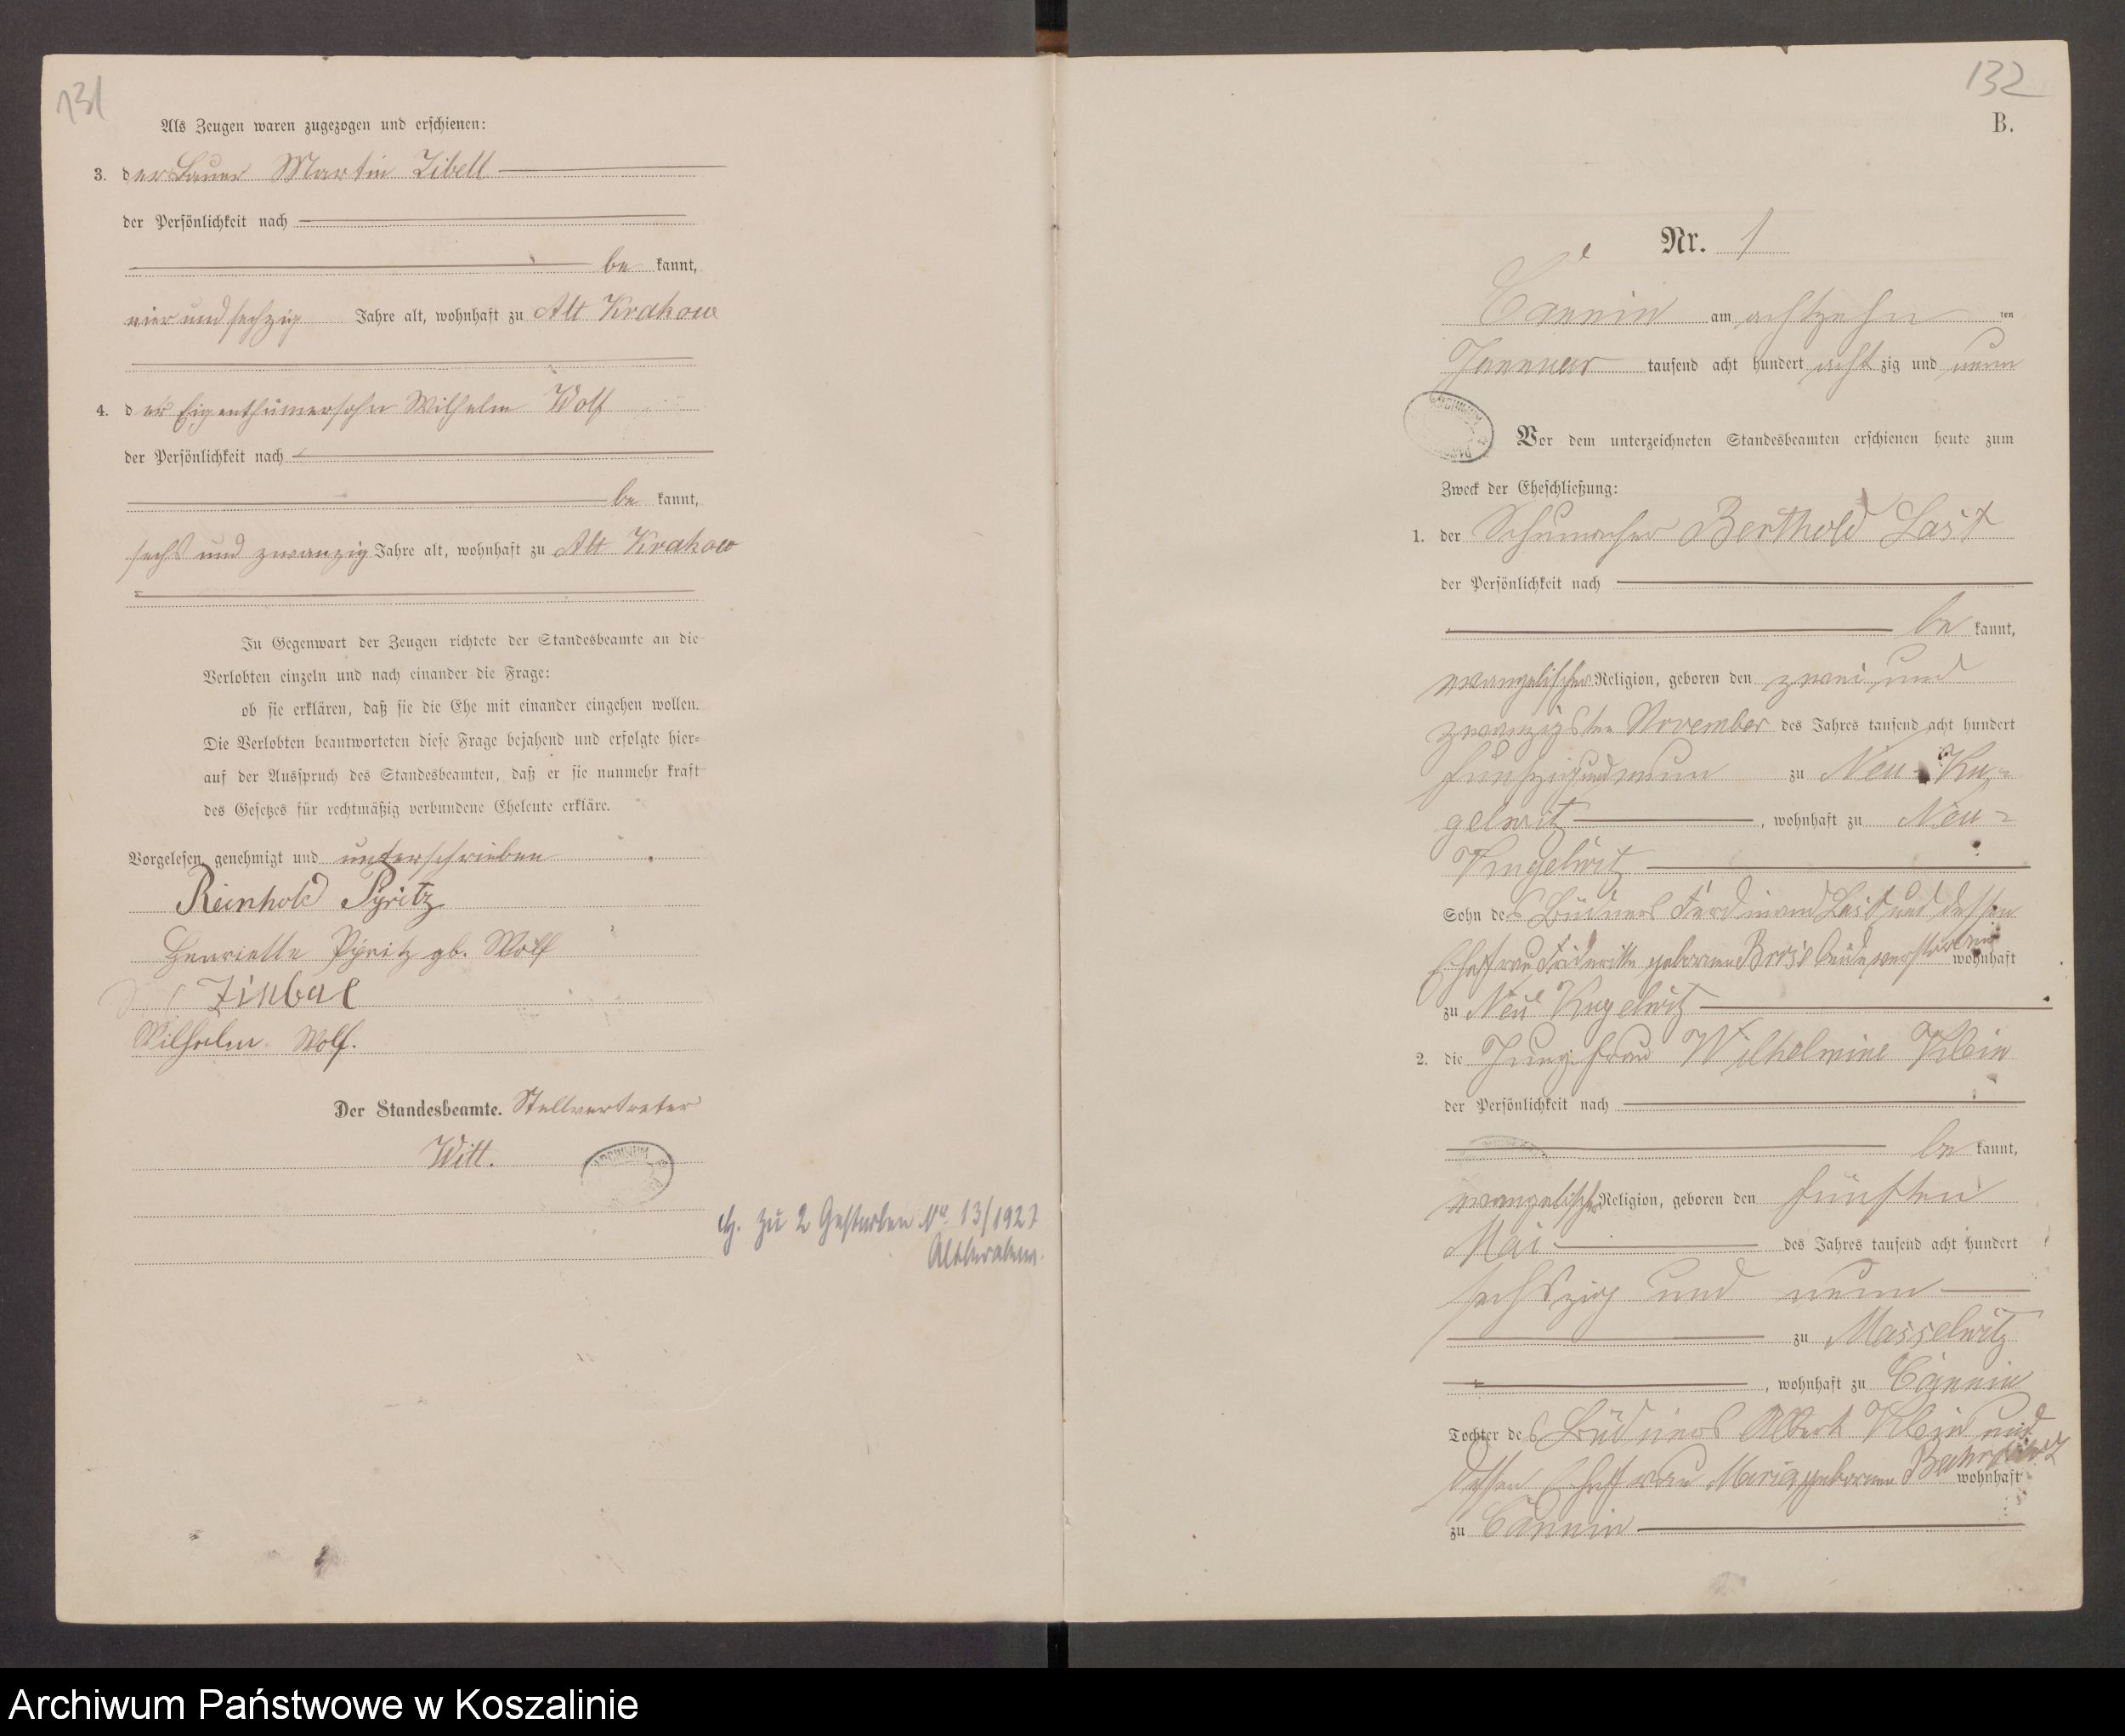 131
Als Zeugen waren zugezogen und erschienen:
3. der Bauer Martin Zibell
der Persönlichkeit nach
be kannt,
vier und sechzig Jahre alt, wohnhaft zu Alt Krakow
4. der Eigenthümersohn Wilhelm Wolf
der Persönlichkeit nach
be kannt,
sechs und zwanzig Jahre alt, wohnhaft zu Alt Krakow
In Gegenwart der Zeugen richtete der Standesbeamte an die
Verlobten einzeln und nach einander die Frage:
ob sie erklären, daß sie die Ehe mit einander eingehen wollen.
Die Verlobten beantworteten diese Frage bejahend und erfolgte hier-
auf der Ausspruch des Standesbeamten, daß er sie nunmehr kraft
des Gesetzes für rechtmäßig verbundene Eheleute erkläre.
Vorgelesen, genehmigt und unterschrieben
Reinhold Pyritz
Henriette Pyritz gb. Wolf
Wilhelm Wolf.
Der Standesbeamte. Stellvertreter
Witt.
ARCHIWUM
zu 2 Gestorben No 13/1927
132
B.
Nr. 1
Cannin am achtzehn ten
Januar tausend acht hundert acht zig und neun
ARCHIWUM
Vor dem unterzeichneten Standesbeamten erschienen heute zum
Zweck der Eheschließung:
1. der Schumacher Berthold Last
der Persönlichkeit nach
be kannt,
evangelischer Religion, geboren den zwei und
zwanzigsten November des Jahres tausend acht hundert
funfzig und neun zu Neu Ku-
gelwitz, wohnhaft zu Neu-
Kugelwitz
Sohn des Büdners Ferdinand Last und dessen
Ehefrau Friderike geborene beide verstorben wohnhaft
zu Neu Kugelwitz
2. die Jungfrau Wilhelmine Klein
der Persönlichkeit nach
be kannt,
evangelischer Religion, geboren den fünften
Mai des Jahres tausend acht hundert
sechszig und neun
zu Masselwitz
, wohnhaft zu Cannin
Tochter des Büdners Albert Klein und
dessen Ehefrau Maria geborene wohnhaft
zu Cannin
Archiwum Państwowe w Koszalinie